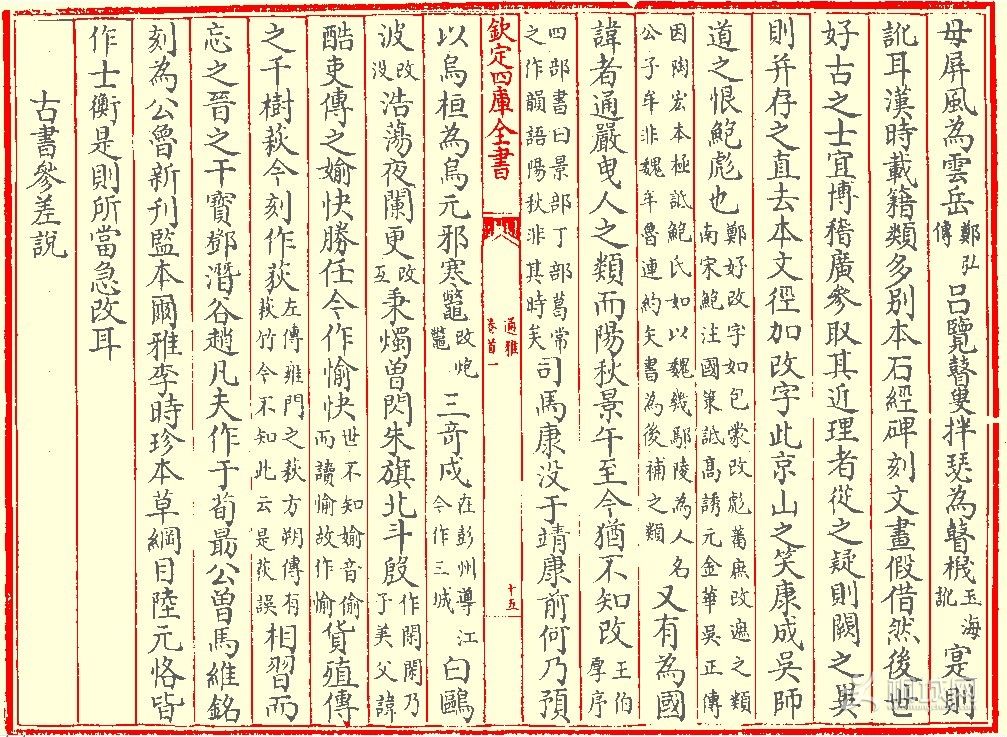 毋屏風為雲岳鄭弘傳呂覽瞽叟拌瑟為瞽玉海訛寔則
訛耳漢時載籍類多別本石經碑刻文畫假借然後世
好古之士宜博稽廣參取其近理者從之疑則闕之異
則并存之直去本文徑加改字此京山之笑康成吳師
道之恨鮑彪也鄭好改字如包蒙改彪萬庶改遮之類南宋鮑注國策詆高誘元金華吳正傳
因陶宏本極詆鮑氏如以魏幾鄢陵為人名公子牟非魏牟魯連約矢書為後補之類又有為國
諱者通嚴曳人之類而陽秋景午至今猶不知改王伯厚序
四部書曰景部丁部葛常之作韻語陽秋非其時矣司馬康沒于靖康前何乃預
欽定四庫全書
通雅
卷首一
十五
以烏桓為烏元邪寒鼈改炮鼈三奇戍在彭州導江今作三城白鷗
波改沒浩蕩夜闌更改互秉燭曾閃朱旗北斗殷作閑閑乃子美父諱
酷吏傳之媮快勝任今作愉快世不知媮音偷而讀愉故作愉貨殖傳
之千樹萩今刻作荻左傳雍門之萩方朔傳有萩竹今不知此云是荻誤相習而
忘之晉之干寶鄧潛谷趙凡夫作于荀勗公曾馬維銘
刻為公魯新刊監本爾雅李時珍本草綱目陸元恪皆
作士衡是則所當急改耳
古書參差說